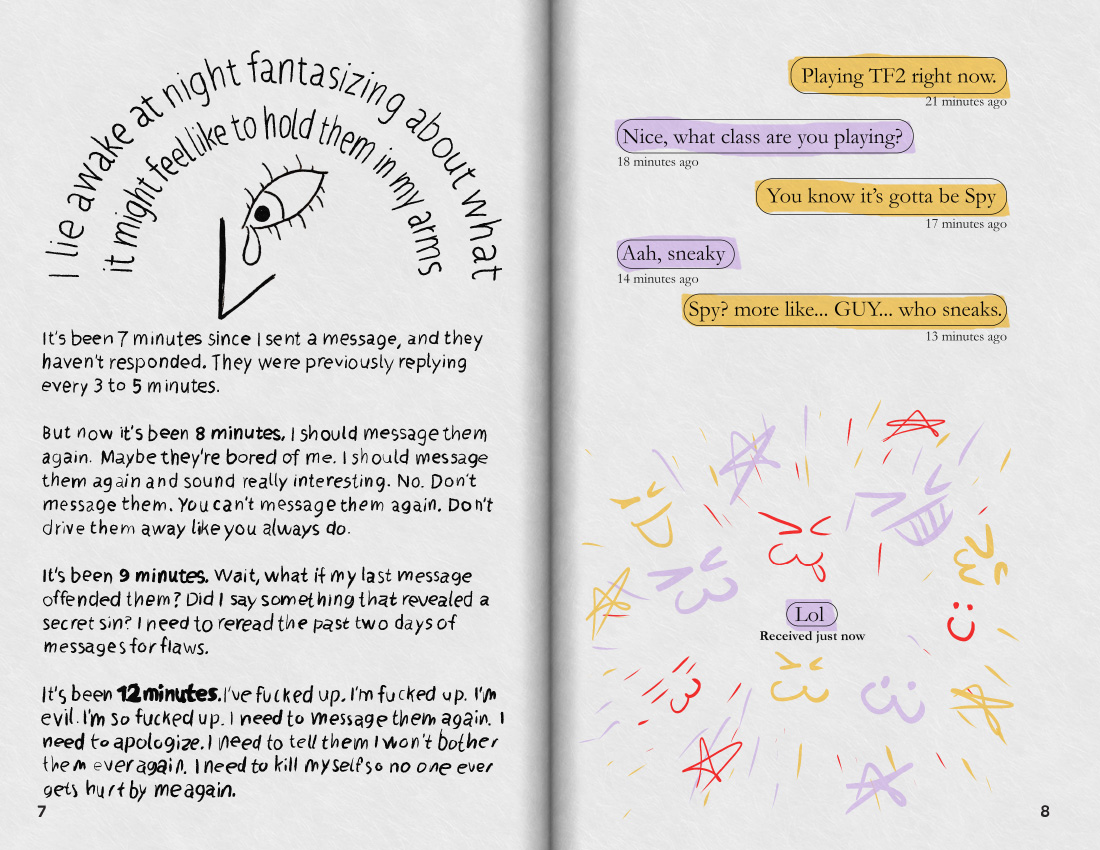 I lie awake at night fantasizing about what
it might feel like to hold them in my arms
It's been 7 minutes since I sent a message, and they
haven't responded. They were previously replying
every 3 to 5 minutes.
But now it's been 8 minutes. I should message them
again. Maybe they're bored of me. I should message
them again and sound really interesting. No. Don't
message them. You can't message them again. Don't
drive them away like you always do.
It's been 9 minutes. Wait, what if my last message
offended them? Did I say something that revealed a
secret sin? I need to reread the past two days of
messages for flaws.
It's been 12 minutes. I've fucked up. I'm fucked up. I'm
evil. I'm so fucked up. I need to message them again. I
need to apologize. I need to tell them I won't bother
them ever again. I need to kill myself so no one ever
gets hurt by me again.
7
Playing TF2 right now.
21 minutes ago
Nice, what class are you playing?
18 minutes ago
You know it's gotta be Spy
17 minutes ago
Aah, sneaky
14 minutes ago
Spy? more like... GUY... who sneaks.
13 minutes ago
Lol
Received just now
8